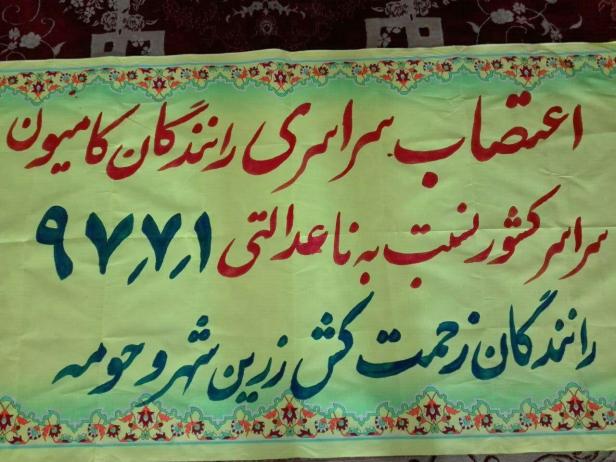 اعتصاب سراسری رانندگان کامیون
سراسر کشور نسبت به ناعدالتی ۹۷٫۷٫۱
رانندگان زحمت کش زرین شهر و حومه